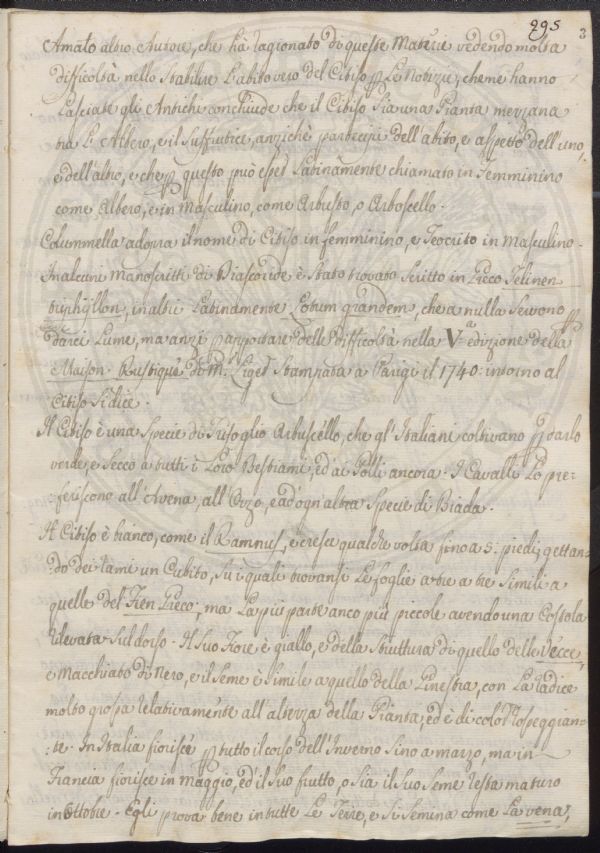 295 3
Amato altro Autore, che hà ragionato di queste Materie vedendo molta
difficoltà nello stabilire l'abito vero del Citiso p le Notizie, che ne hanno
lasciate gli Antichi conchiude che il Citiso sia una Pianta mezzana
tra l'Albero, e il Suffrutice, anzichè partecipi dell'abito, e aspetto dell'uno,
e dell'altro, e che p questo può esser latinamente chiamato in Femminino
come Albero, e in Masculino, come Arbusto, o Arboscello.
Colummella adopra il nome di Citiso in femminino, e Teocrito in Masculino.
In alcuni Manoscritti di Dioscoride è stato trovato scritto in Greco Telinen
triphyllon, in altri Latinamente Lotum grandem, che a nulla servono p
darci lume, ma anzi p apportare delle Difficoltà nella Va edizione della
Maison Rustique di M. Liger stampata a Parigi il 1740: intorno al
Citiso si dice.
Il Citiso è una specie di Trifoglio Arbuscello, che gl'Italiani coltivano p darlo
verde, e secco a tutti i loro Bestiami, ed ai Polli ancora. I Cavalli lo pre=
=feriscono all'Avena, all'Orzo, e ad ogn'altra specie di Biada.
Il Citiso è bianco, come il Ramnus, e cresce qualche volta fino a 5: piedi, gettan=
=do dei rami un Cubito, su i quali trovansi le foglie a tre a tre simili a
quelle del Fien Greco; ma la più parte anco più piccole avendo una Costola
rilevata sul dorso. Il suo Fiore è giallo, e della struttura di quello delle Vecce,
e macchiato di nero, e il seme è simile a quello della Ginestra, con la radice
molto grossa relativamente all'altezza della Pianta, ed è di color Rosseggian=
=te. In Italia fiorisce p tutto il corso dell'Inverno sino a marzo, ma in
Francia fiorisce in Maggio, ed il suo frutto, o sia il suo seme resta maturo
in Ottobre. Egli prova bene in tutte le Terre, e si semina come la vena,